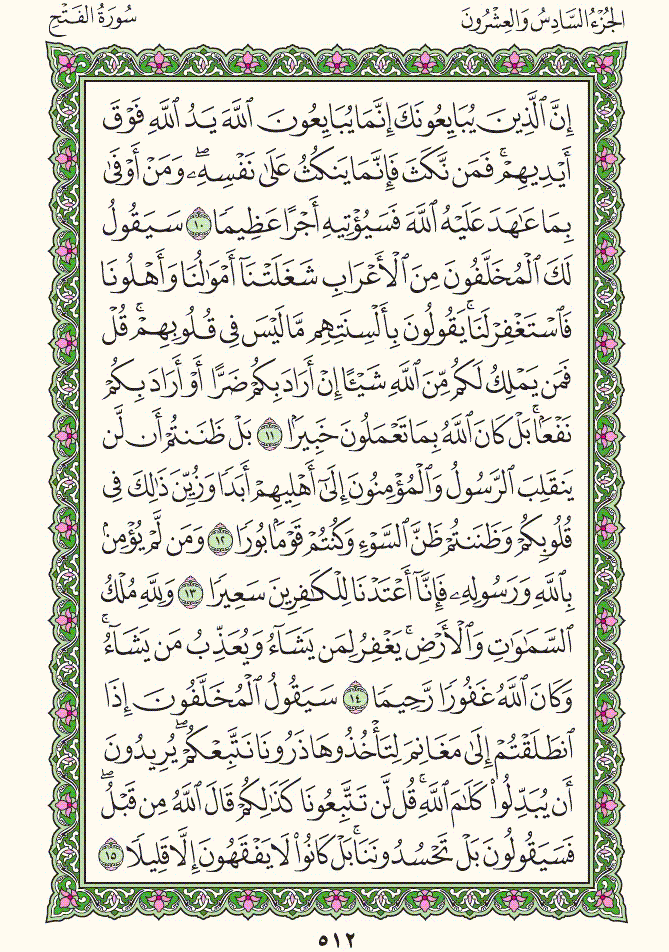 الجزء السادس والعشرون
سورة الفتح
إِنَّ ٱلَّذِينَ يُبَايِعُونَكَ إِنَّمَا يُبَايِعُونَ ٱللَّهَ يَدُ ٱللَّهِ فَوْقَ
أَيْدِيهِمْ ۚ فَمَن نَّكَثَ فَإِنَّمَا يَنكُثُ عَلَىٰ نَفْسِهِۦ ۖ وَمَنْ أَوْفَىٰ
بِمَا عَـٰهَدَ عَلَيْهُ ٱللَّهَ فَسَيُؤْتِيهِ أَجْرًا عَظِيمًا ١٠ سَيَقُولُ
لَكَ ٱلْمُخَلَّفُونَ مِنَ ٱلْأَعْرَابِ شَغَلَتْنَآ أَمْوَٰلُنَا وَأَهْلُونَا
فَٱسْتَغْفِرْ لَنَا ۚ يَقُولُونَ بِأَلْسِنَتِهِم مَّا لَيْسَ فِى قُلُوبِهِمْ ۚ قُلْ
فَمَن يَمْلِكُ لَكُم مِّنَ ٱللَّهِ شَيْـًٔا إِنْ أَرَادَ بِكُمْ ضَرًّا أَوْ أَرَادَ بِكُمْ
نَفْعًۢا ۚ بَلْ كَانَ ٱللَّهُ بِمَا تَعْمَلُونَ خَبِيرًۢا ١١ بَلْ ظَنَنتُمْ أَن لَّن
يَنقَلِبَ ٱلرَّسُولُ وَٱلْمُؤْمِنُونَ إِلَىٰٓ أَهْلِيهِمْ أَبَدًا وَزُيِّنَ ذَٰلِكَ فِى
قُلُوبِكُمْ وَظَنَنتُمْ ظَنَّ ٱلسَّوْءِ وَكُنتُمْ قَوْمًۢا بُورًا ١٢ وَمَن لَّمْ يُؤْمِنۢ
بِٱللَّهِ وَرَسُولِهِۦ فَإِنَّآ أَعْتَدْنَا لِلْكَـٰفِرِينَ سَعِيرًا ١٣ وَلِلَّهِ مُلْكُ
ٱلسَّمَـٰوَٰتِ وَٱلْأَرْضِ ۚ يَغْفِرُ لِمَن يَشَآءُ وَيُعَذِّبُ مَن يَشَآءُ ۚ
وَكَانَ ٱللَّهُ غَفُورًا رَّحِيمًا ١٤ سَيَقُولُ ٱلْمُخَلَّفُونَ إِذَا
ٱنطَلَقْتُمْ إِلَىٰ مَغَانِمَ لِتَأْخُذُوهَا ذَرُونَا نَتَّبِعْكُمْ ۖ يُرِيدُونَ
أَن يُبَدِّلُوا۟ كَلَـٰمَ ٱللَّهِ ۚ قُل لَّن تَتَّبِعُونَا كَذَٰلِكُمْ قَالَ ٱللَّهُ مِن قَبْلُ ۖ
فَسَيَقُولُونَ بَلْ تَحْسُدُونَنَا ۚ بَلْ كَانُوا۟ لَا يَفْقَهُونَ إِلَّا قَلِيلًا ١٥
٥١٢